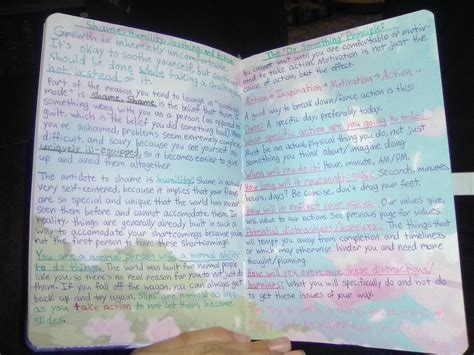 Shame, Humility, Soothing and Action
Growth is inherently uncomfortable.
It's okay to soothe yourself, but soothing
should be done while taking a challenge,
not instead of it.
Part of the reason you tend to lounge in "comfort
mode" is shame. Shame, is the belief that there is
something wrong with you as a person (as opposed to
guilt, which is the belief you did something bad). When
you're ashamed, problems seem overly complex,
difficult, and scary because you see yourself as
uniquely ill-equipped, so it becomes easier to give
up and avoid them altogether.
The antidote to shame is humility. Shame is actually
very self-centered, because it implies that your flaws
are so special and unique that the world has never
seen them before and cannot accomodate them. In
reality, things are generally already built in such a
way to accomodate your shortcomings because you're
not the first person to have these shortcomings.
You are a normal person with a normal ability
to do things. The world was built for normal people
like you, so there's no real reason for you to not join
them. If you fall off the wagon, you can always get
back up and try again. Slips are normal as long
as you take action to not let them become
slides.
The "Do Something" Principle:
You cannot wait until you are comfortable or motiv-
ated to take action. Motivation is not just the
cause of action, but the effect.
Action → Inspiration → Motivation → Action...
A good way to break down/force action is this:
Date: A specific day, preferably today.
What specific action are you going to take?
Must be an actual physical thing you do, not just
something you think about/imagine doing
When will you do it? Hours, minute, AM/PM.
How long will it reasonably take? Seconds, minutes,
hours, days? Be concise, don't drag your feet.
How will it reflect your values? Our values give
value to our actions. See previous page for values.
Potential distractions/barriers: The things that
will tempt you away from completion and timeliness
which may otherwise hinder you and need more
thought/planning.
How will you overcome these distractions/
barriers? What you will specifically do and not do
to get these issues out of your way.